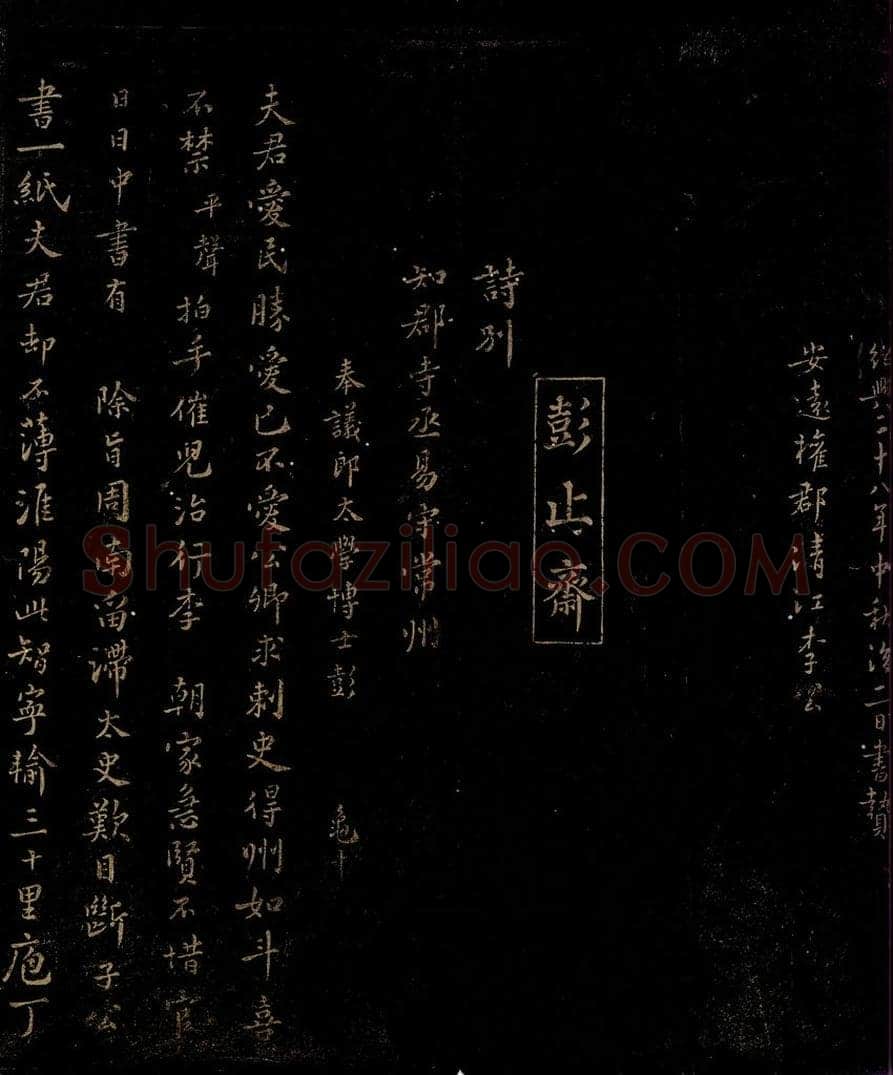 紹興二十八年中秋後二日書贊
安遠權郡清江李公
彭止齋
詩別
知郡寺丞易守常州
奉議郎太學博士彭 龜年
夫君愛民勝愛己不愛公卿求刺史得州如斗喜
不禁平聲拍手催児治行李 朝家急賢不惜官
日日中書有 除旨周南留滯太史歎目斷子公
書一紙夫君却不薄淮陽此智寧輸三十里庖丁
Shufaziliao.COM